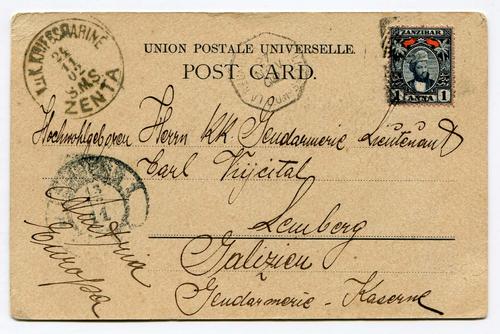 K.u.K. KRIEGSMARINE
24
11
02
S.M.S.
ZENTA
UNION POSTALE UNIVERSELLE.
POST CARD.
ZANZIBAR
1 ANNA 1
Hochwohlgeboren Herrn KK. Gendarmerie Lieutenant
Carl
Lemberg
Galizien
Gendarmerie - Kaserne
Austria
Europa